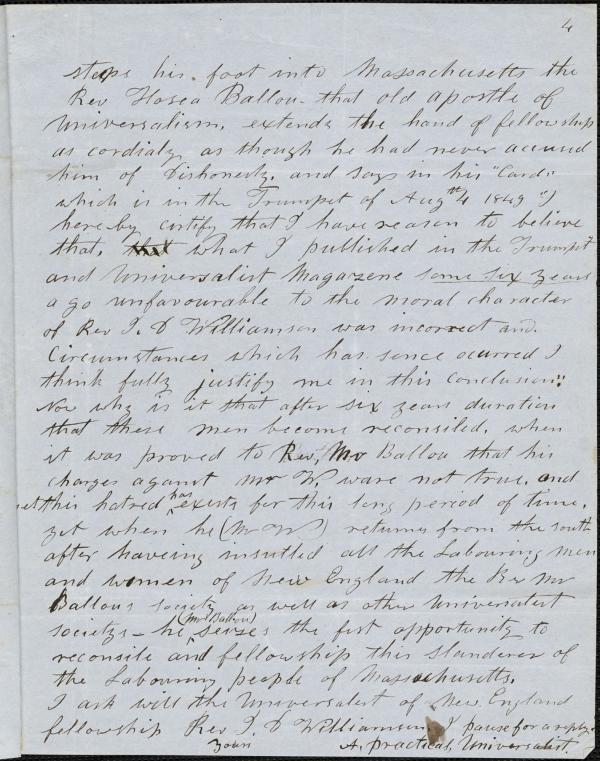 4
steps his foot into Massachusetts the
Rev Hosea Ballou - that old apostle of
Universalism, extends the hand of fellowship
as cordialy as though he had never accused
him of Dishonesty, and says in his "Card"
which is in the Trumpet of Augth 4 1849 "I
here by certify that I have reason to believe
that, that what I published in the Trumpet
and Universalist Magazene some six years
a go unfavourable to the moral character
of Rev I. D Williamson was incorrect and
Circumstances which has sence ocurred I
think fully justify me in this conclusion":
Now why is it that after six years duration
that these men become reconsiled, when
it was proved to Rev, Mr Ballou that his
charges against mr W. ware not true, and
yet this hatred has exists for this long period of time,
yet when he (Mr W) returns from the south
after haveing insulted all the Labouring men
and women of New England the Rev Mr
Ballous society as well as other Universalist
societys - he (Mr Ballou) seises the fist opportunity to
reconsile and fellowship this slanderer of
the Labouring people of Massachusetts.
I ask will the Universalist of New England
fellowship Rev I. D Williamson, I pause for a reply
Yours
A. practical, Universalist.